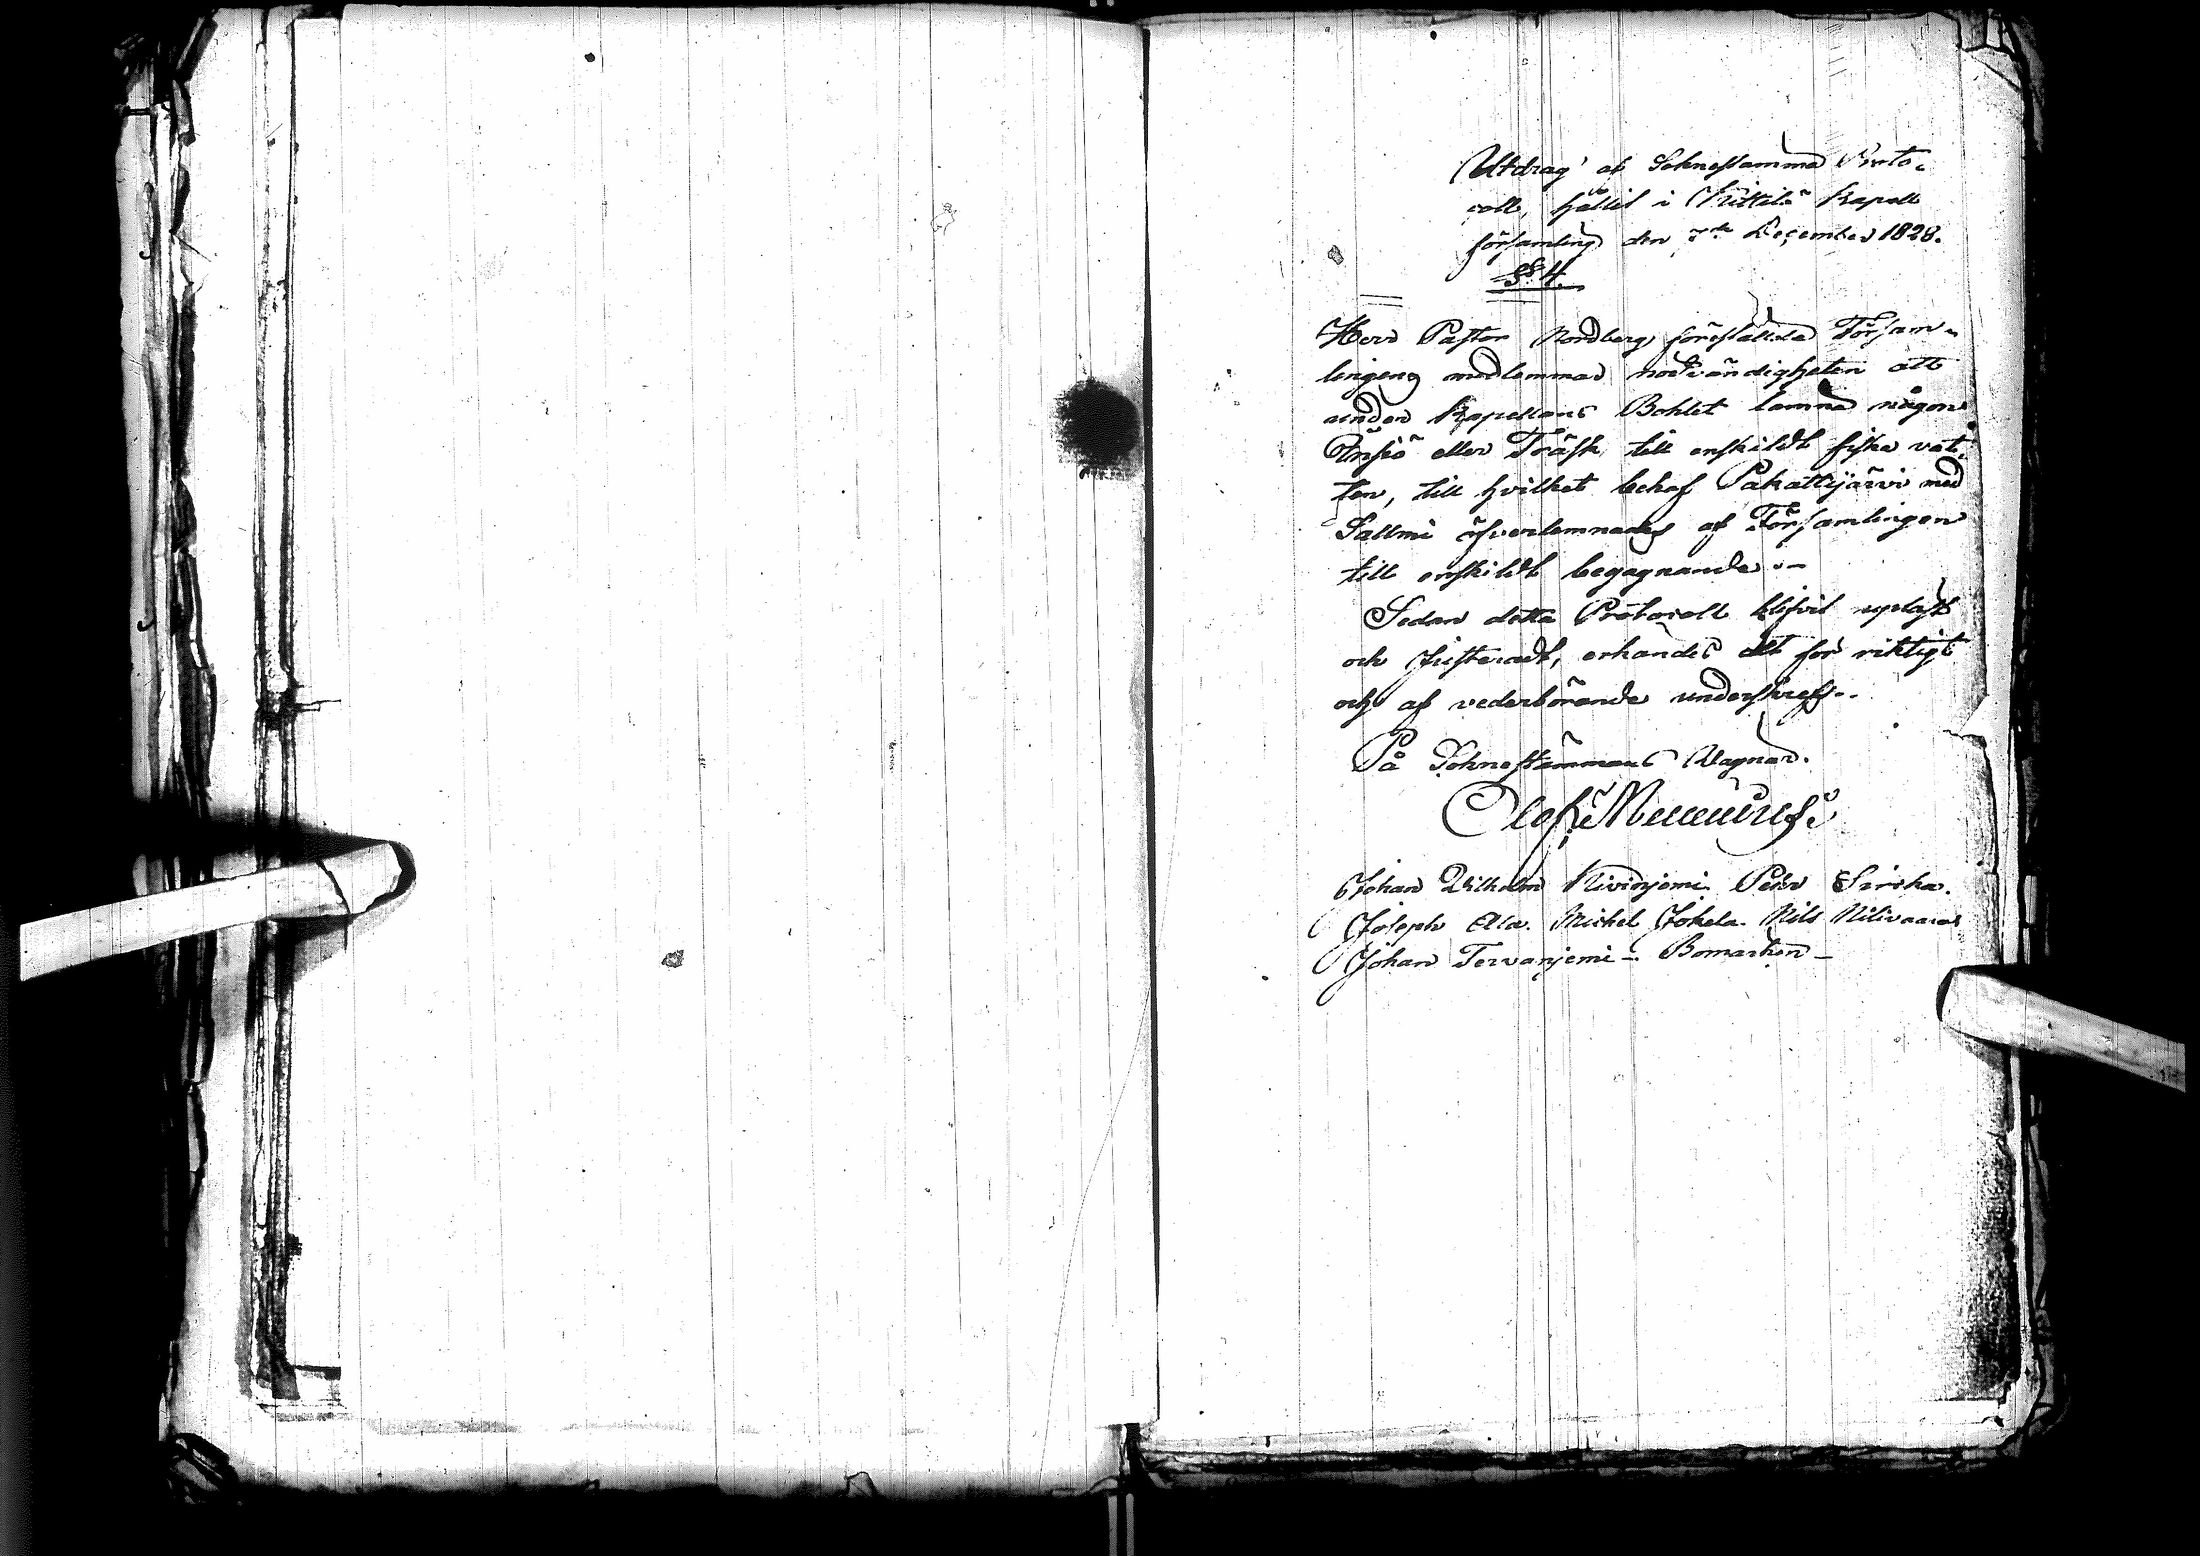 Utdrag af Soknestamma Proto-
coll, hållit i Kittilä Kapell
församling den 7de December 1828.
§ 4.
Herr Pastor Nordberg föreställde Försam-
lingens medlemmar nödvändigheten att
under Kapellans Bohlet lämna någon
Insiö eller Träsk till enskildt fiske vat-
ten, till hvilket behof Pakattijärvi med
Sallmi öfverlemnades af Församlingen
till enskildt begagnande.-
Sedan detta Protocoll blifvit upläst
och justeradt, erkändes det för riktigt
och af vederbörande underskrefs.-
På Sokneståmmans Vägnar.
Olof
Johan Wilhelm Kiviniemi. Petr Sirka.
Joseph Ala. Michel Jokela. Nils Nilivaara
Johan Tervanjemi - Bomärken -